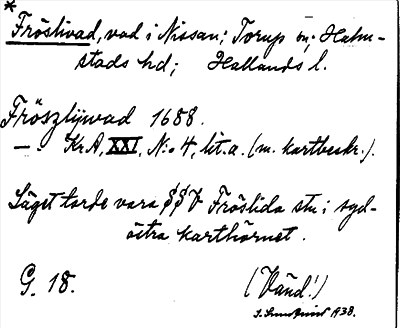 *
Fröslivad, vad i Nissan; Torup sn; Halm-
stads hd; Hallands l.
Fröszlijwad 1688.
— . Kr.A, XXI, N:o 4, lit. a. (m. kartbeskr.).
Läget torde vara SSV Fröslida stn. i syd-
östra karthörnet.
G. 18. (Vänd!)
1938.